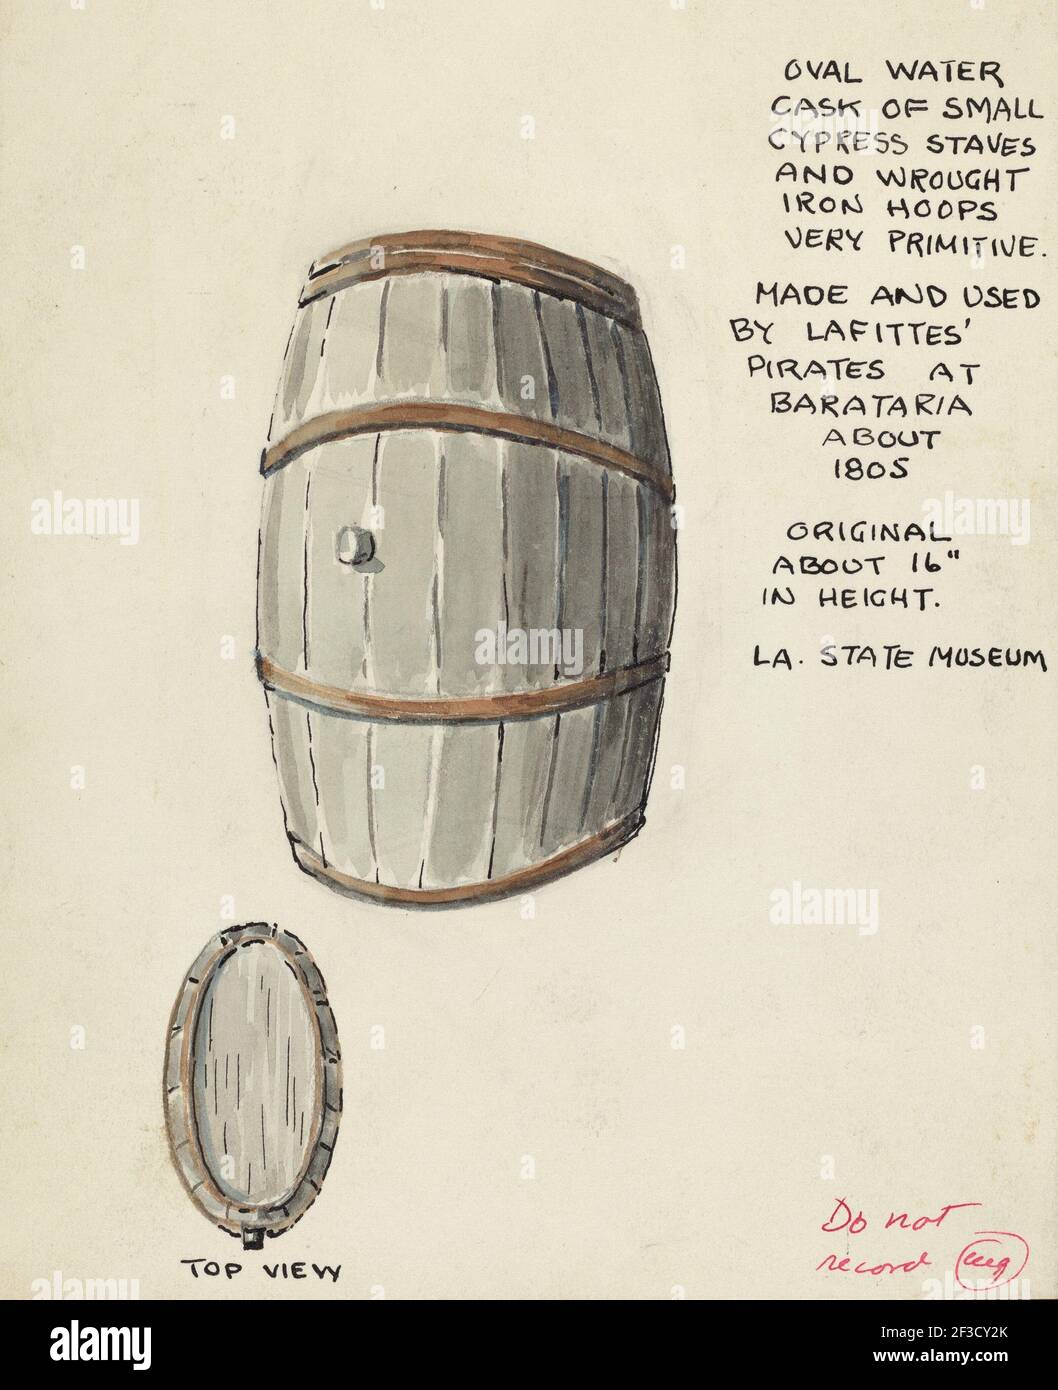 OVAL WATER
CASK OF SMALL
CYPRESS STAVES
AND WROUGHT
IRON HOOPS
VERY PRIMITIVE.
MADE AND USED
BY LAFITTES'
PIRATES AT
BARATARIA
ABOUT
1805
ORIGINAL
ABOUT 16"
IN HEIGHT.
LA. STATE MUSEUM
TOP VIEW
Do not
record
alamy
Image ID: 2F3CY2K
www.alamy.com